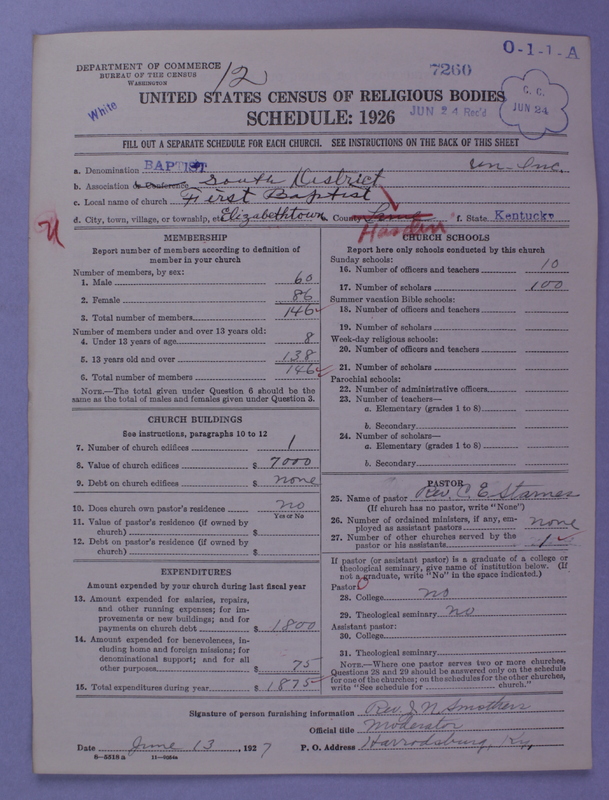 O-1-1-A
DEPARTMENT OF COMMERCE
BUREAU OF THE CENSUS
WASHINGTON
12
7260
C. C.
JUN 24
White
UNITED STATES CENSUS OF RELIGIOUS BODIES
JUN 24 Rec'd
SCHEDULE: 1926
FILL OUT A SEPARATE SCHEDULE FOR EACH CHURCH. SEE INSTRUCTIONS ON THE BACK OF THIS SHEET
a. Denomination BAPTIST
b. Association or Conference South District
c. Local name of church First Baptist
d. City, town, village, or township, etc. Elizabethtown e. County Hardin f. State Kentucky
MEMBERSHIP
Report number of members according to definition of
member in your church
Number of members, by sex:
1. Male 60
2. Female 86
3. Total number of members 146
Number of members under and over 13 years old:
4. Under 13 years of age 8
5. 13 years old and over 138
6. Total number of members 146
NOTE.—The total given under Question 6 should be the
same as the total of males and females given under Question 3.
CHURCH BUILDINGS
See instructions, paragraphs 10 to 12
7. Number of church edifices 1
8. Value of church edifices $ 7000
9. Debt on church edifices $ none
10. Does church own pastor's residence no
Yes or No
11. Value of pastor's residence (if owned by
church) $
12. Debt on pastor's residence (if owned by
church) $
EXPENDITURES
Amount expended by your church during last fiscal year
13. Amount expended for salaries, repairs,
and other running expenses; for im-
provements or new buildings; and for
payments on church debt $ 1800
14. Amount expended for benevolences, in-
cluding home and foreign missions; for
denominational support; and for all
other purposes $ 75
15. Total expenditures during year $ 1875
CHURCH SCHOOLS
Report here only schools conducted by this church
Sunday schools:
16. Number of officers and teachers 10
17. Number of scholars 100
Summer vacation Bible schools:
18. Number of officers and teachers
19. Number of scholars
Week-day religious schools:
20. Number of officers and teachers
21. Number of scholars
Parochial schools:
22. Number of administrative officers
23. Number of teachers—
a. Elementary (grades 1 to 8)
b. Secondary
24. Number of scholars—
a. Elementary (grades 1 to 8)
b. Secondary
PASTOR
25. Name of pastor Rev. C. E. Starnes
(If church has no pastor, write "None")
26. Number of ordained ministers, if any, em-
ployed as assistant pastors none
27. Number of other churches served by the
pastor or his assistants 1
If pastor (or assistant pastor) is a graduate of a college or
theological seminary, give name of institution below. (If
not a graduate, write "No" in the space indicated.)
Pastor:
28. College no
29. Theological seminary no
Assistant pastor:
30. College
31. Theological seminary
NOTE.—Where one pastor serves two or more churches,
Questions 28 and 29 should be answered only on the schedule
for one of the churches; on the schedules for the other churches,
write "See schedule for church."
Signature of person furnishing information Rev. J. N. Smothers
Official title Moderator
Date June 13, 1927 P. O. Address Harrodsburg, Ky,
8—5518 a